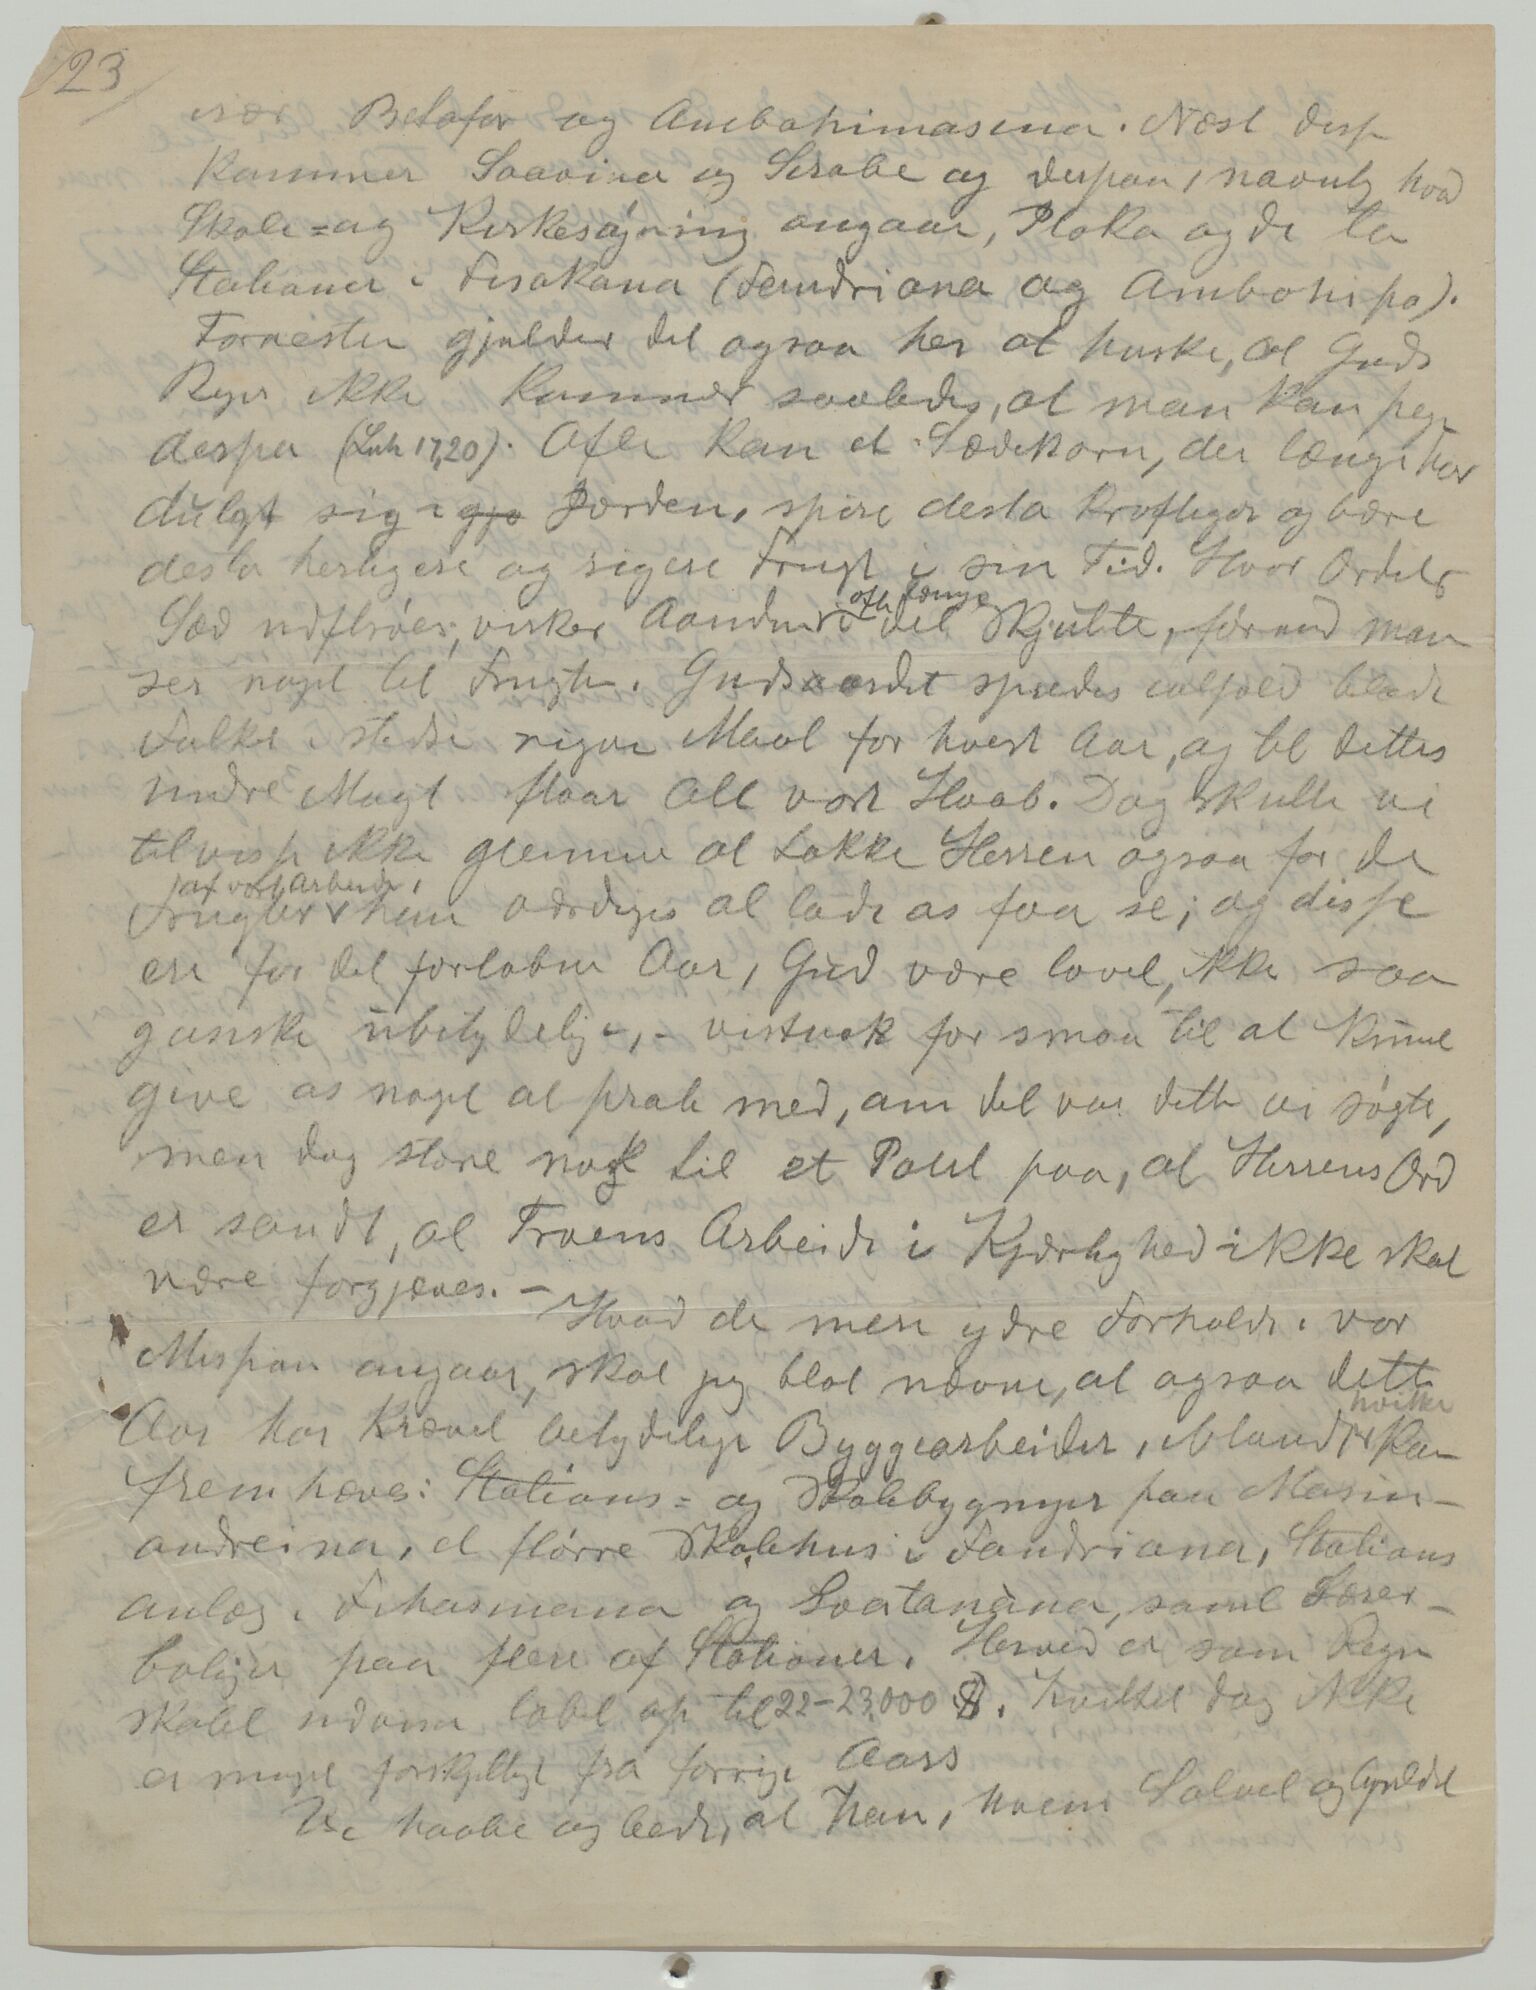 23
især Betafo og Ambohimasina. Næst disse
kommer Soavina og Sirabe og dispaa, navnlig hvad
Skole- og Kirkesøgning angaar, Iloka og de to
Stationer i Fisakana (Fandriana og Ambohipo).
Forresten gjælder det ogsaa her at huske, at Guds
Rige ikke kommer saaledes, at man kan pege
derpaa (Luk 17,20). Ofte kan et Sædekorn, der længe har
dulgt sig i Jorden, spire desto kraftigere og bære
desto herligere og rigere Frugt i sin Tid. Hvor Ordets
Sæd udstrøes, virker Aanden ofte længe i det Skjulte, førend man
ser noget til Frugten. Guds ordet spredes ialfald blandt
Folket i stedse rigere Maal for hvert Aar, og til dettes
indre Magt staar alt vort Haab. Dog skulle vi
tilvisse ikke glemme at takke Herren ogsaa for de
Frugter af vort Arbeide, han værdiges at lade os faa se; og disse
ere for det forløbne Aar, Gud være lovet, ikke saa
ganske ubetydelige, - vistnok for smaa til at kunne
give os noget at prale med, om det var dette vi søgte,
men dog store nok til et Point paa, at Herrens Ord
er sandt, at Troens Arbeide i Kjærlighed ikke skal
være forgjæves. -
Hvad de mere ydre Forholde i vor
Mission angaar, skal jeg blot nævne, at ogsaa dette
Aar har krævet betydelige Byggearbeider, iblandt hvilke kan
fremhæves: Stations- og Skolebygninger paa Masin-
andreina, et større Skolehus i Fandriana, Stations
anlæg i Fihasinana og Soatanana, samt Lærer-
boliger paa flere af Stationer. Herved er som Regn
skabet udviser løbet op til 22-23,000 $. hvilket dog ikke
er meget forskjelligt fra forrige Aars
Vi haabe og bede, at han, hvem Sølvet og Guldet